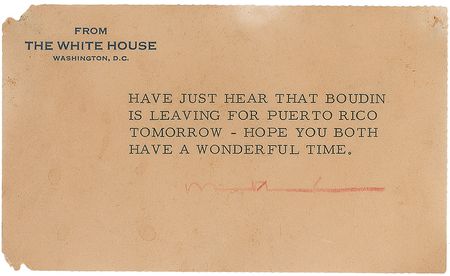 FROM
THE WHITE HOUSE
WASHINGTON, D.C.
HAVE JUST HEAR THAT BOUDIN
IS LEAVING FOR PUERTO RICO
TOMORROW - HOPE YOU BOTH
HAVE A WONDERFUL TIME.